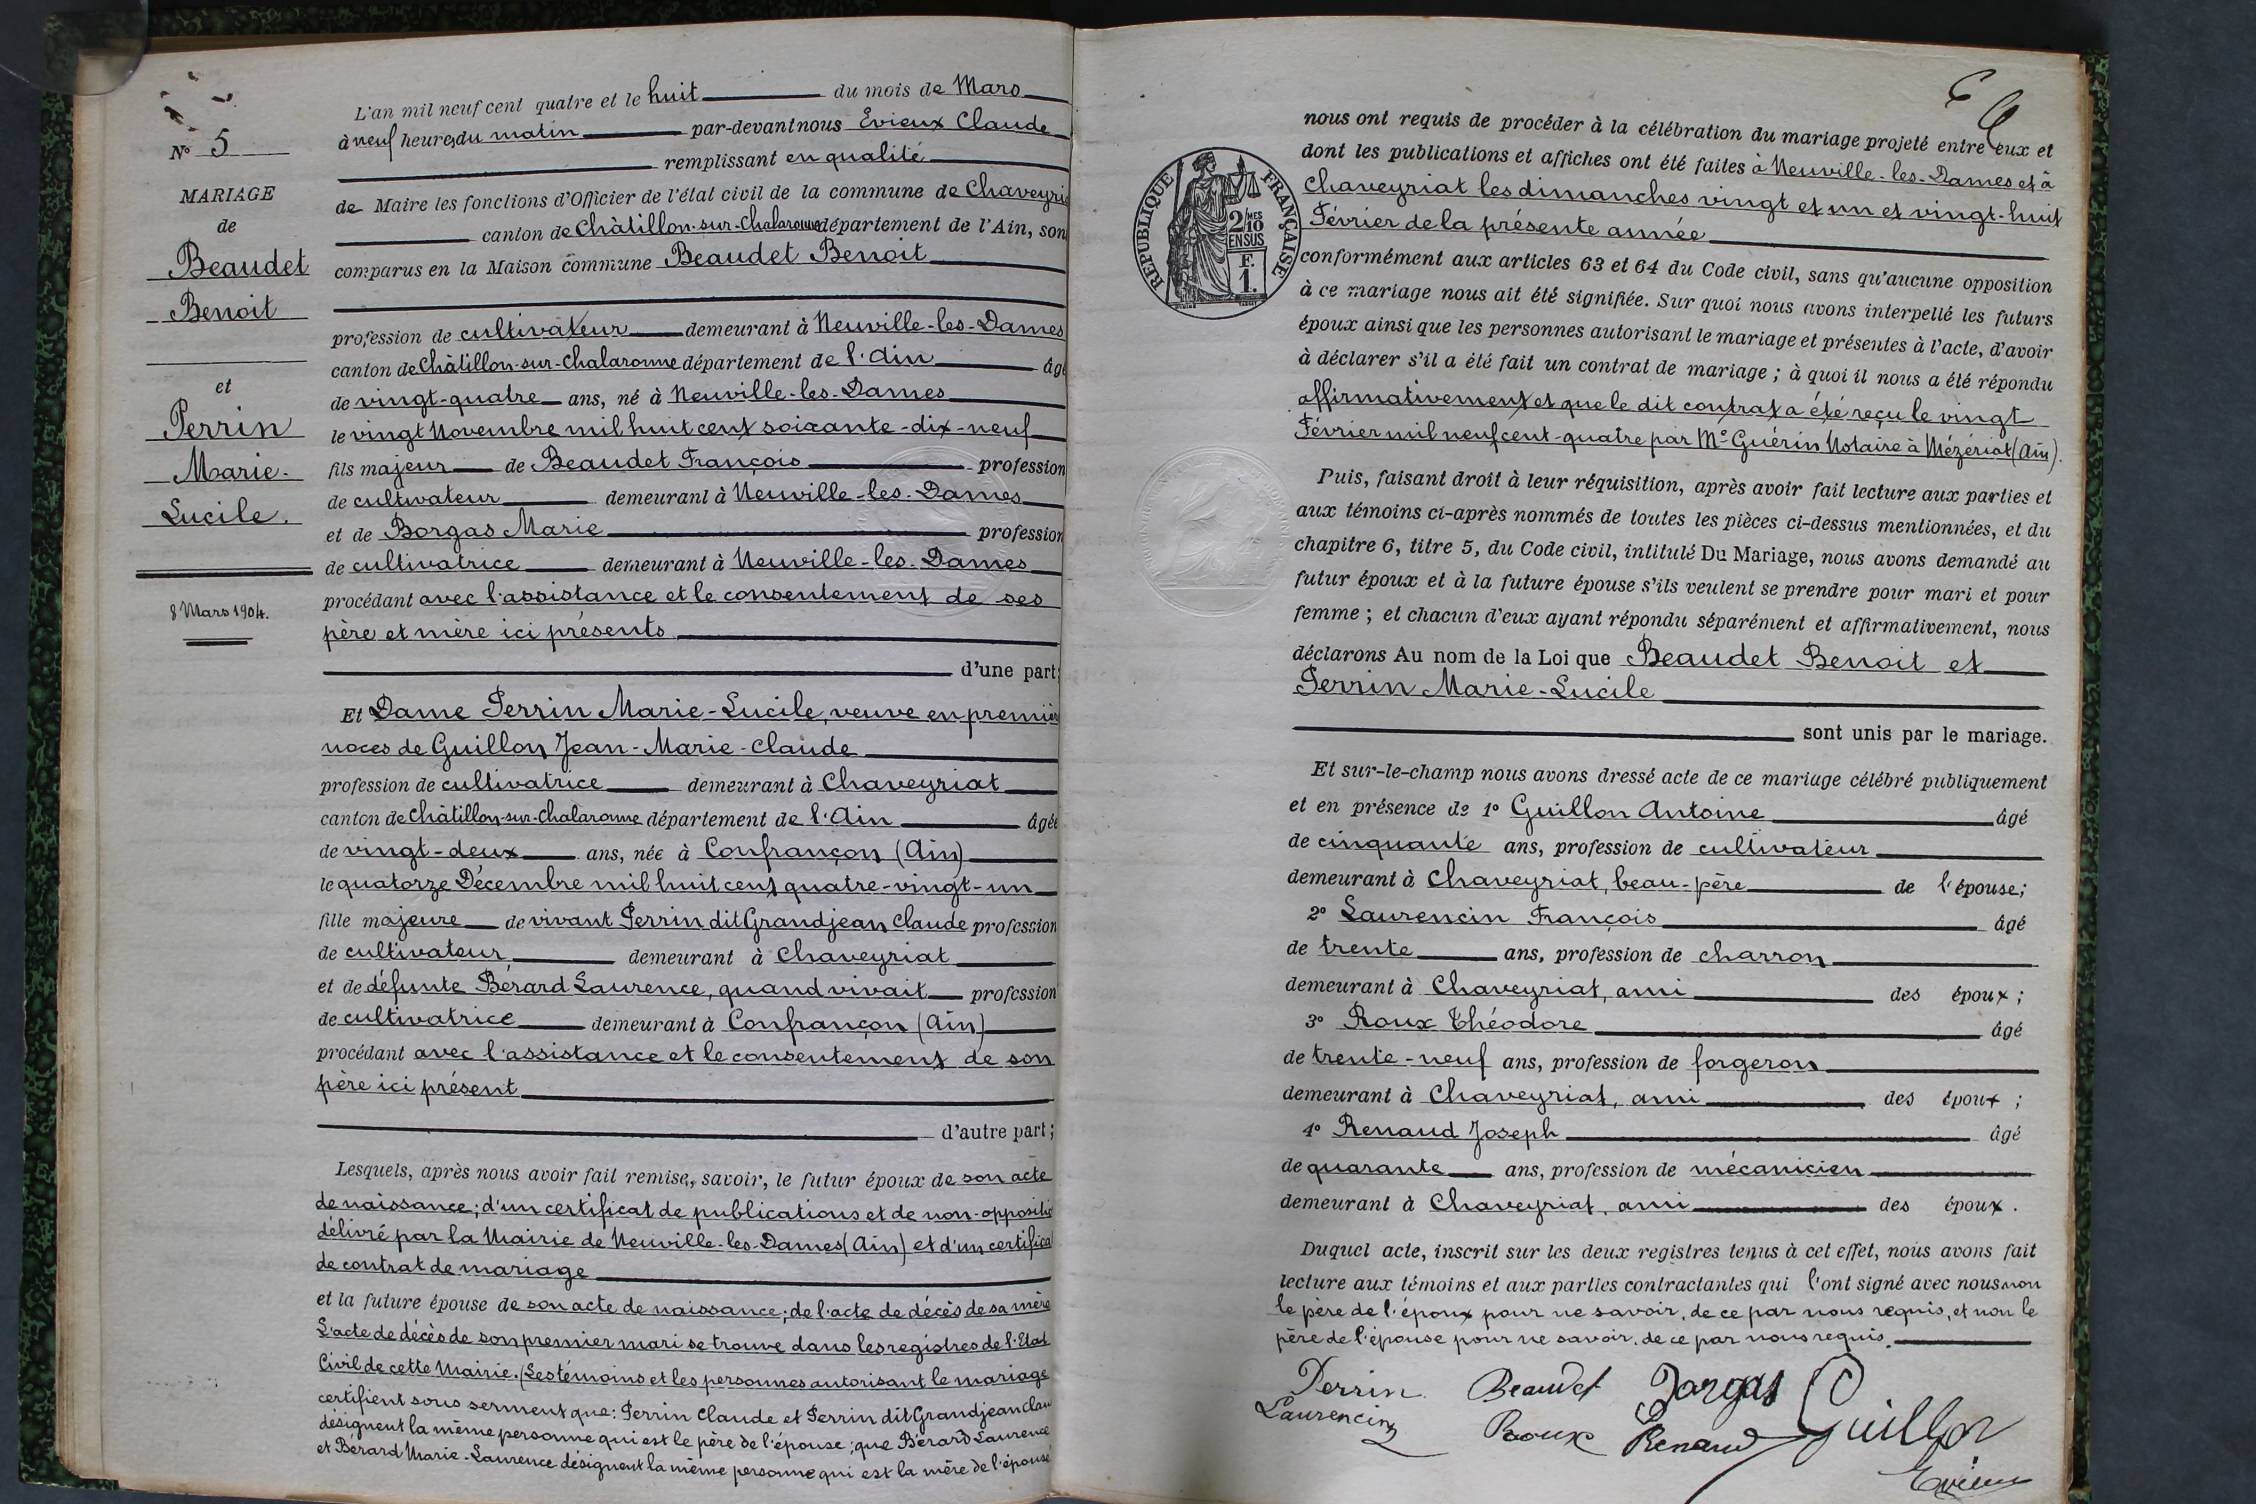 L'an mil neuf cent quatre et le huit du mois de Mars
à neuf heures du matin par-devant nous Evieux Claude
remplissant en qualité
de Maire les fonctions d'Officier de l'état civil de la commune de Chaveyri
canton de Châtillon-sur-Chalaronne département de l'Ain, son
comparus en la Maison commune Beaudet Benoit
profession de cultivateur demeurant à Neuville-les-Dames
canton de Châtillon-sur-Chalaronne département de l'Ain âgé
de vingt-quatre ans, né à Neuville-les-Dames
le vingt Novembre mil huit cent soixante-dix-neuf
fils majeur de Beaudet François profession
de cultivateur demeurant à Neuville-les-Dames
et de Borgas Marie profession
de cultivatrice demeurant à Neuville-les-Dames
procédant avec l'assistance et le consentement de ses
père et mère ici présents
d'une part;
Et Dame Perrin Marie-Lucile, veuve en premièr
noces de Guillon Jean-Marie-Claude
profession de cultivatrice demeurant à Chaveyriat
canton de Châtillon-sur-Chalaronne département de l'Ain âgée
de vingt-deux ans, née à Confrançon (Ain)
le quatorze Décembre mil huit cent quatre-vingt-un
fille majeure de vivant Perrin dit Grandjean Claude profession
de cultivateur demeurant à Chaveyriat
et de défunte Bérard Laurence, quand vivait profession
de cultivatrice demeurant à Confrançon (Ain)
procédant avec l'assistance et le consentement de son
père ici présent
d'autre part;
Lesquels, après nous avoir fait remise, savoir, le futur époux de son acte
de naissance; d'un certificat de publications et de non-oppositio
délivré par la Mairie de Neuville-les-Dames (Ain) et d'un certifica
de contrat de mariage
et la future épouse de son acte de naissance; de l'acte de décès de sa mère
L'acte de décès de son premier mari se trouve dans les registres de l'Etat
Civil de cette Mairie. (Les témoins et les personnes autorisant le mariage
certifient sous serment que: Perrin Claude et Perrin dit Grandjean Clau
désignent la même personne qui est le père de l'épouse; que Bérard Laurence
et Bérard Marie-Laurence désignent la même personne qui est la mère de l'épouse
N° 5
MARIAGE
de
Beaudet
Benoit
et
Perrin
Marie-
Lucile.
8 Mars 1904.
6
nous ont requis de procéder à la célébration du mariage projeté entre eux et
dont les publications et affiches ont été faites à Neuville-les-Dames et à
Chaveyriat les dimanches vingt et un et vingt-huit
Février de la présente année
conformément aux articles 63 et 64 du Code civil, sans qu'aucune opposition
à ce mariage nous ait été signifiée. Sur quoi nous avons interpellé les futurs
époux ainsi que les personnes autorisant le mariage et présentes à l'acte, d'avoir
à déclarer s'il a été fait un contrat de mariage; à quoi il nous a été répondu
affirmativement et que le dit contrat a été reçu le vingt
Février mil neuf cent-quatre par Me Guérin Notaire à Mézériat (Ain).
Puis, faisant droit à leur réquisition, après avoir fait lecture aux parties et
aux témoins ci-après nommés de toutes les pièces ci-dessus mentionnées, et du
chapitre 6, titre 5, du Code civil, intitulé Du Mariage, nous avons demandé au
futur époux et à la future épouse s'ils veulent se prendre pour mari et pour
femme; et chacun d'eux ayant répondu séparément et affirmativement, nous
déclarons Au nom de la Loi que Beaudet Benoit et
Perrin Marie-Lucile
sont unis par le mariage.
Et sur-le-champ nous avons dressé acte de ce mariage célébré publiquement
et en présence de 1° Guillon Antoine âgé
de cinquante ans, profession de cultivateur
demeurant à Chaveyriat, beau-père de l'épouse;
2° Laurencin François âgé
de trente ans, profession de charron
demeurant à Chaveyriat, ami des époux;
3° Roux Théodore âgé
de trente-neuf ans, profession de forgeron
demeurant à Chaveyriat, ami des époux;
4° Renaud Joseph âgé
de quarante ans, profession de mécanicien
demeurant à Chaveyriat, ami des époux.
Duquel acte, inscrit sur les deux registres tenus à cet effet, nous avons fait
lecture aux témoins et aux parties contractantes qui l'ont signé avec nous non
le père de l'époux pour ne savoir, de ce par nous requis, et non le
père de l'épouse pour ne savoir, de ce par nous requis.
Perrin Beaudet Borgas
Laurencin Roux Renaud Guillon
Evieux
RÉPUBLIQUE FRANÇAISE
2/10 MES
EN SUS
F.
1.